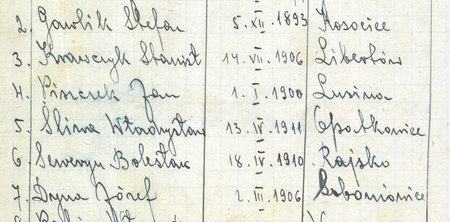 2. Gawlik Stefan 5. XII. 1893 Kosocice
3. Krawczyk Stanisł 14. VII. 1906 Libertów
4. Piszczek Jan 1. I. 1900 Lusina
5. Śliwa Władysław 13. IV. 1911 Opatkowice
6. Seweryn Bolesław 18. IV. 1910 Rajsko
7. Dyna Józef 2. III. 1906